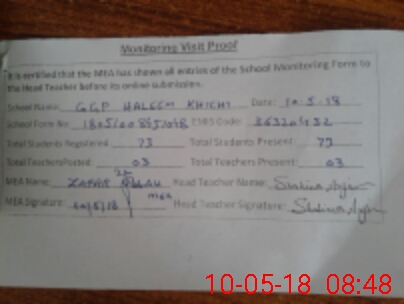 Monitoring Visit Proof
It is certified that the MEA has shown all entries of the School Monitoring Form to
the Head Teacher before its online submission.
School Name: GGP HALEEM KHICHI Date: 10-5-18
School Form No: EMIS Code:
Total Students Registered: 73 Total Students Present: 73
Total Teachers Posted: 03 Total Teachers Present: 03
MEA Name: ZAFAR Head Teacher Name: Shahina
MEA Signature: 10/5/18 MEA Head Teacher Signature: Shahina
10-05-18 08:48